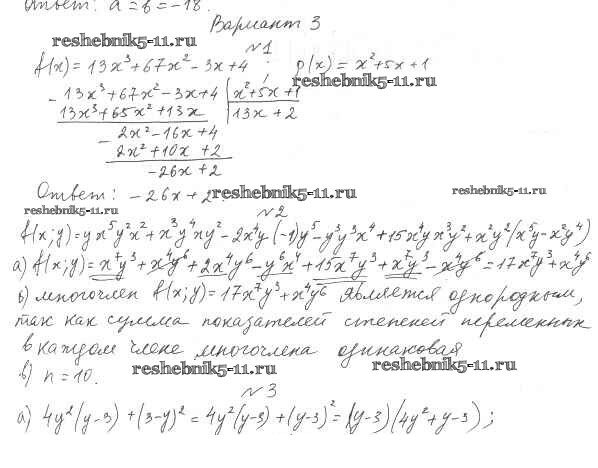 Ответ: a = b = -18.
Вариант 3
reshebnik5-11.ru
№1
f(x) = 13x³ + 67x² - 3x + 4 ; p(x) = x² + 5x + 1
reshebnik5-11.ru
- 13x³ + 67x² - 3x + 4 | x² + 5x + 1
13x³ + 65x² + 13x | 13x + 2
- 2x² - 16x + 4
2x² + 10x + 2
-26x + 2
Ответ: -26x + 2 reshebnik5-11.ru reshebnik5-11.ru
reshebnik5-11.ru №2
f(x;y) = yx⁵y²x² + x³y⁴xy² - 2x⁴y(-1)y⁵ - y³y³x⁴ + 15x⁴yx³y² + x²y²(x⁵y - x²y⁴)
а) f(x;y) = x⁷y³ + x⁴y⁶ + 2x⁴y⁶ - y⁶x⁴ + 15x⁷y³ + x⁷y³ - x⁴y⁶ = 17x⁷y³ + x⁴y⁶
б) многочлен f(x;y) = 17x⁷y³ + x⁴y⁶ является однородным,
так как сумма показателей степеней переменных
в каждом члене многочлена одинаковая
в) n = 10. reshebnik5-11.ru reshebnik5-11.ru
№3
а) 4y²(y-3) + (3-y)² = 4y²(y-3) + (y-3)² = (y-3)(4y² + y - 3);
reshebnik5-11.ru